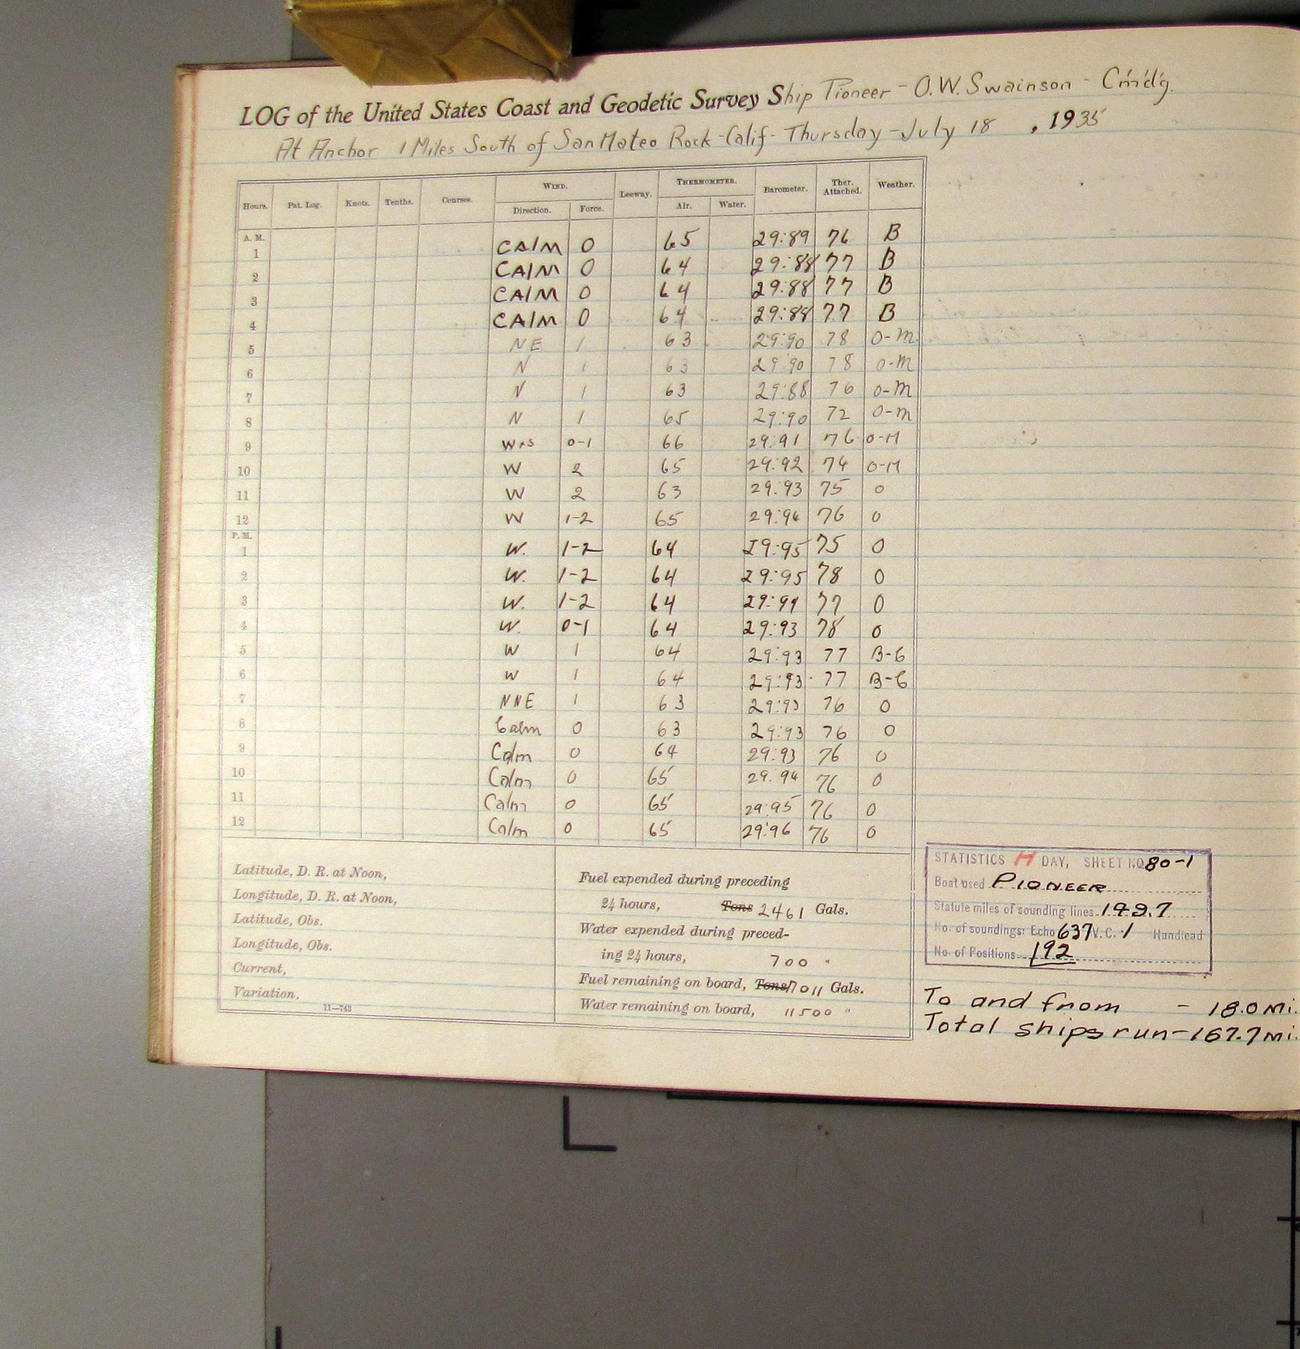 LOG of the United States Coast and Geodetic Survey Ship Pioneer - O.W. Swainson - Cm'd'g.
At Anchor 1 Miles South of San Mateo Rock - Calif - Thursday - July 18, 1935
Hours. Pat. Log. Knots. Tenths. Courses. WIND. Direction. Force. Leeway. THERMOMETER. Air. Water. Barometer. Ther. Attached. Weather.
A. M.
1 CAlM 0 65 29:89 76 B
2 CAlM 0 64 29:88 77 B
3 CAlM 0 64 29:88 77 B
4 CAlM 0 64 29:88 77 B
5 NE 1 63 29:90 78 O-M
6 N 1 63 29:90 78 O-M
7 N 1 63 29:88 76 O-M
8 N 1 65 29:90 72 O-M
9 0-1 66 29.91 76 O-M
10 W 2 65 29.92 74 O-M
11 W 2 63 29.93 75 O
12 W 1-2 65 29:94 76 O
P. M.
1 W. 1-2 64 29:95 75 O
2 W. 1-2 64 29:95 78 O
3 W. 1-2 64 29:94 77 O
4 W. 0-1 64 29:93 78 O
5 W 1 64 29:93 77 B-C
6 W 1 64 29:93 77 B-C
7 NNE 1 63 29:93 76 O
8 Calm 0 63 29:93 76 O
9 Calm 0 64 29:93 76 O
10 Calm 0 65 29.94 76 O
11 Calm 0 65 29.95 76 O
12 Calm 0 65 29:96 76 O
Latitude, D. R. at Noon,
Longitude, D. R. at Noon,
Latitude, Obs.
Longitude, Obs.
Current,
Variation,
11—743
Fuel expended during preceding
24 hours, Tons 2461 Gals.
Water expended during preced-
ing 24 hours, 700 "
Fuel remaining on board, Tons 17011 Gals.
Water remaining on board, 11500 "
STATISTICS H DAY, SHEET NO. 80-1
Boat used PIONEER
Statute miles of sounding lines 149.7
No. of soundings: Echo 637 V.C. 1 Handlead
No. of Positions 192
To and from - 18.0 mi.
Total ships run - 167.7 mi.